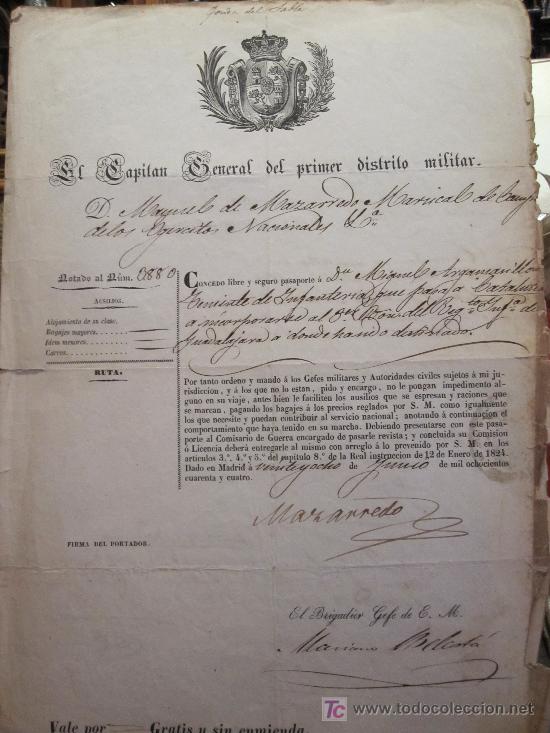 El Capitan General del primer distrito militar.
D. Manuel de Mazarredo Mariscal de Camp
de los Egércitos Nacionales &.ª
Notado al Núm. 0880
AUSILIOS.
Alojamiento de su clase.
Bagajes mayores.
Idem menores.
Carros.
RUTA.
CONCEDO libre y seguro pasaporte á Dn. Miguel
Teniente de Infantería, que pasa a Cataluña
a incorporarse al del Regto. Infª. de
Guadalajara a donde ha sido destinado.
Por tanto ordeno y mando á los Gefes militares y Autoridades civiles sujetos á mi ju-
risdiccion, y á los que no lo estan, pido y encargo, no le pongan impedimento al-
guno en su viaje, antes bien le faciliten los ausilios que se espresan y raciones que
se marcan, pagando los bagajes á los precios reglados por S. M. como igualmente
los que necesite y puedan contribuir al servicio nacional; anotando á continuacion el
comportamiento que haya tenido en su marcha. Debiendo presentarse con este pasa-
porte al Comisario de Guerra encargado de pasarle revista; y concluida su Comision
ó Licencia deberá entregarle al mismo con arreglo á lo prevenido por S. M. en los
articulos 3.º, 4.º y 5.º del capitulo 8.º de la Real instruccion de 12 de Enero de 1824.
Dado en Madrid á veinte y ocho de Junio de mil ochocientos
cuarenta y cuatro.
Mazarredo
FIRMA DEL PORTADOR.
El Brigadier Gefe de E. M.
Mariano Belestá
Vale por Gratis y sin enmienda
TC todocoleccion
www.todocoleccion.net